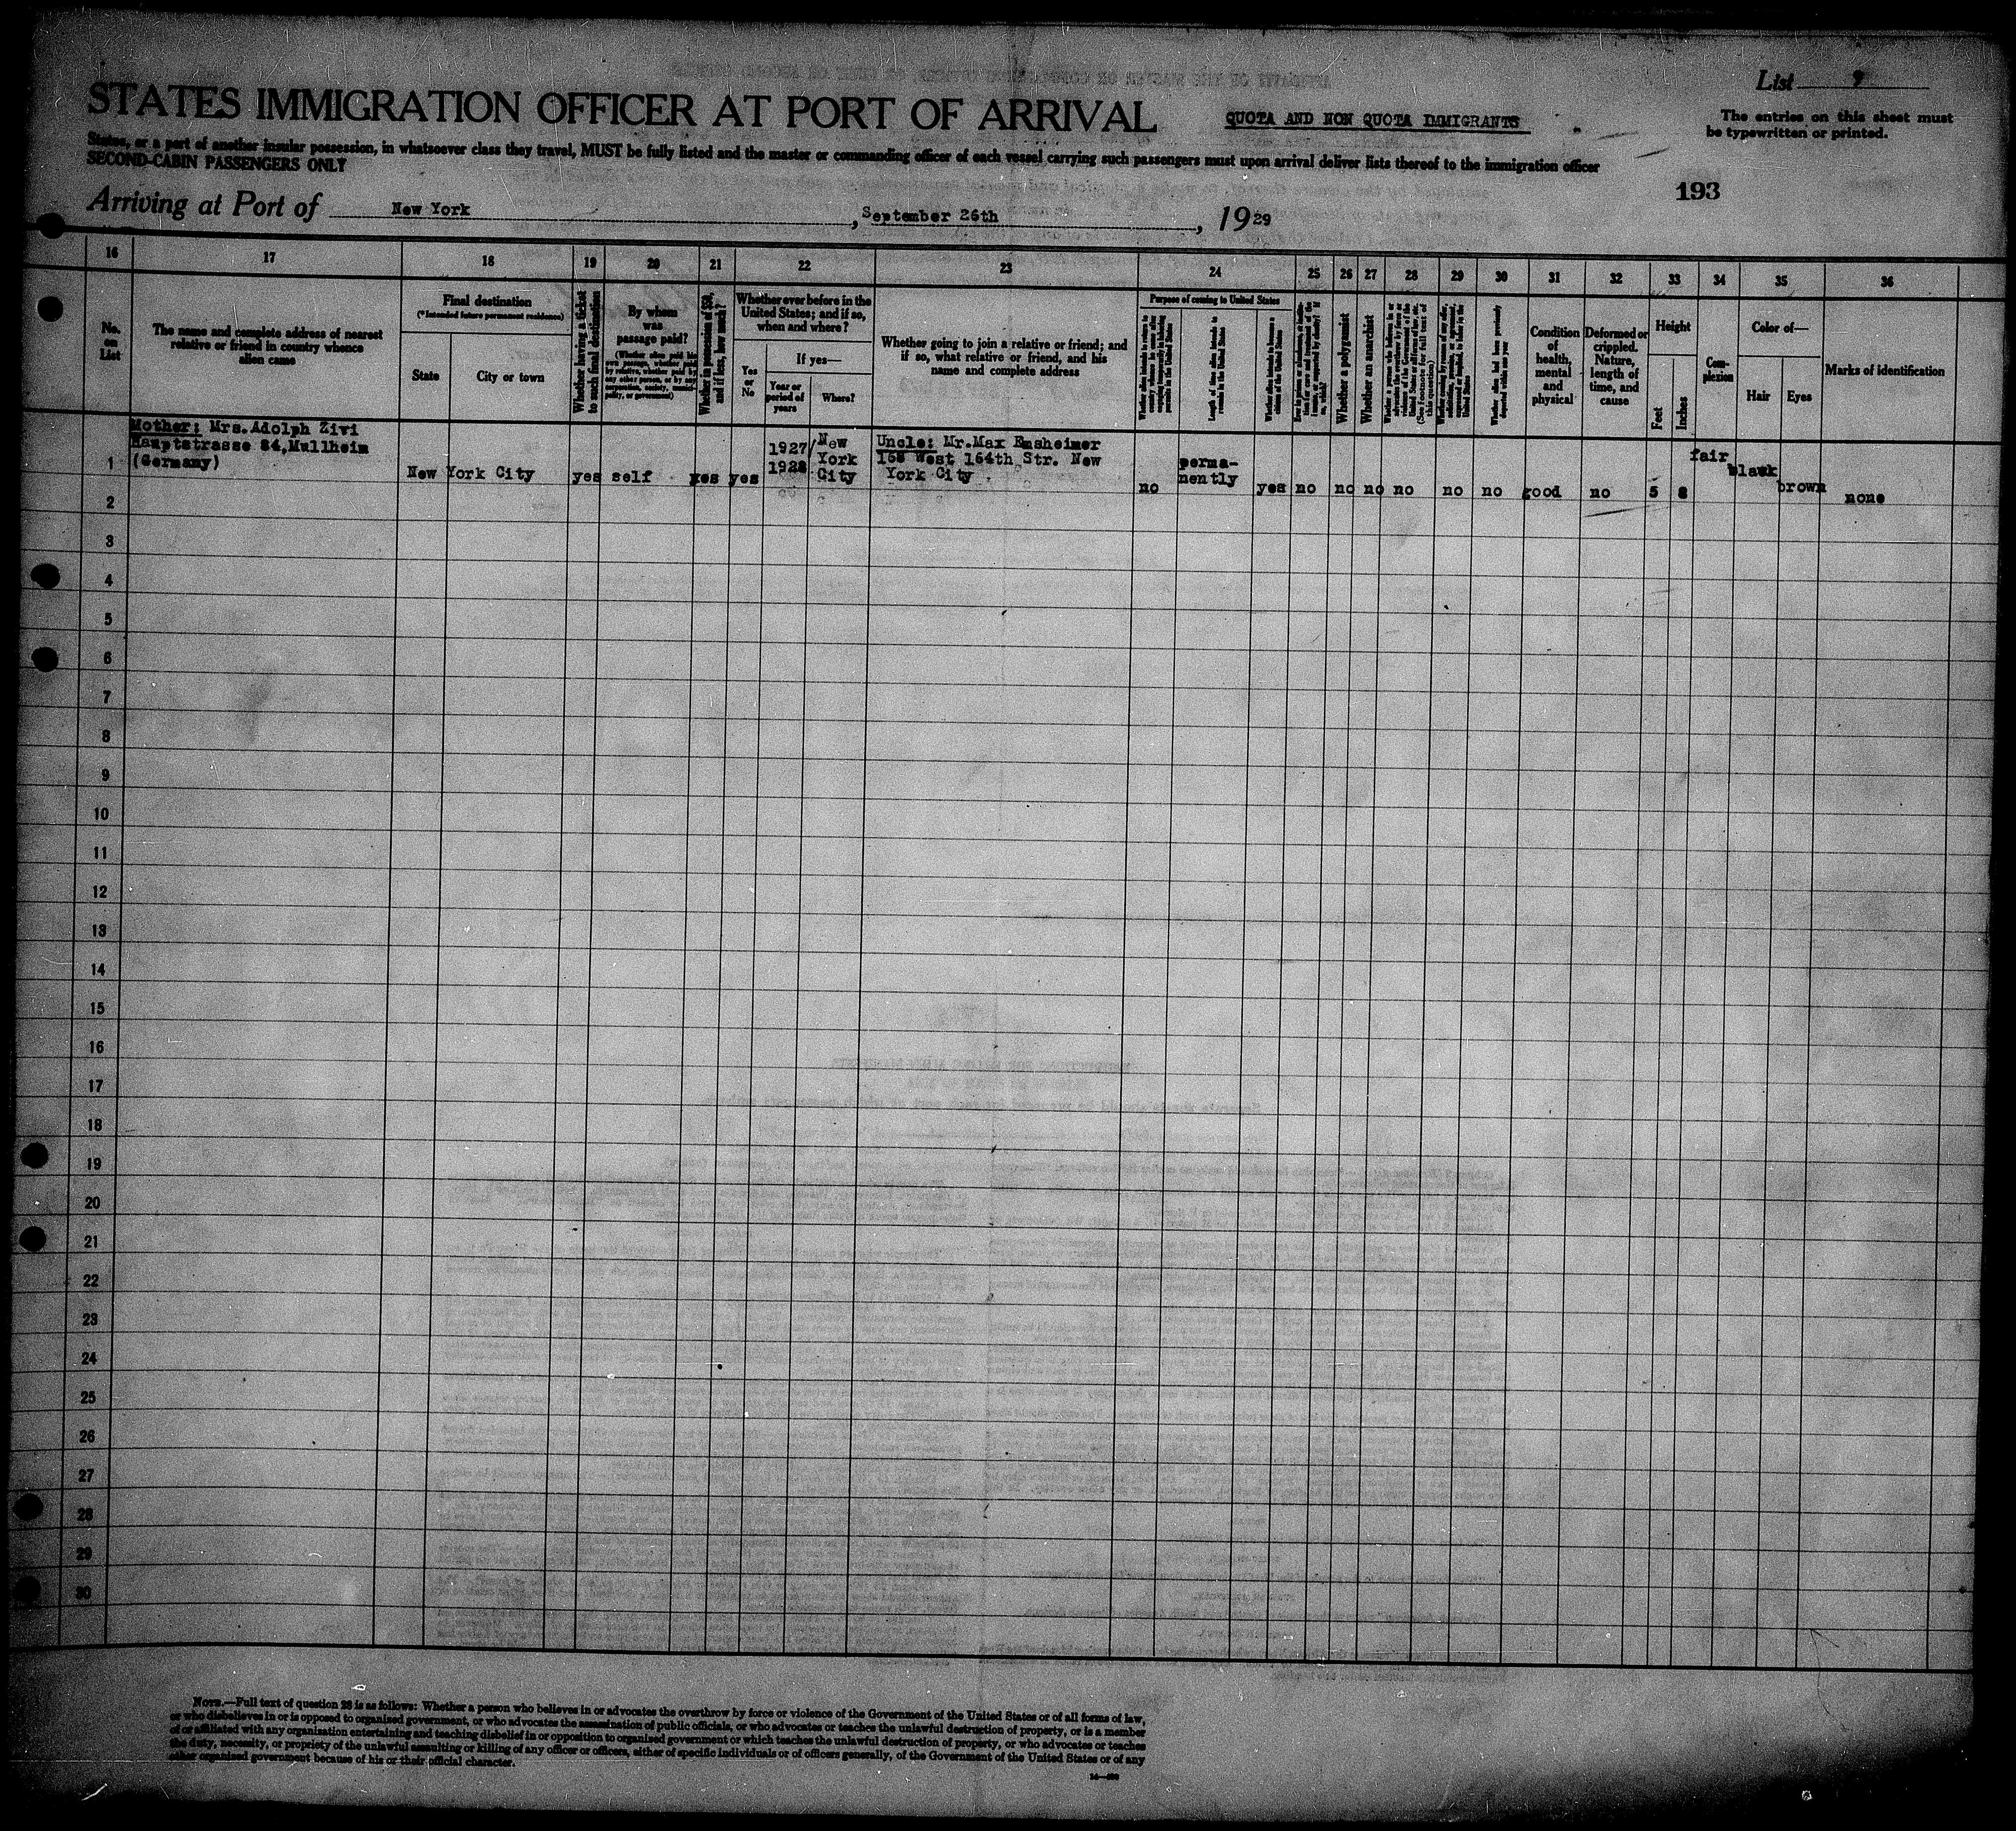 List 9
STATES IMMIGRATION OFFICER AT PORT OF ARRIVAL
QUOTA AND NON QUOTA IMMIGRANTS
The entries on this sheet must
be typewritten or printed.
States, or a part of another insular possession, in whatsoever class they travel, MUST be fully listed and the master or commanding officer of each vessel carrying such passengers must upon arrival deliver lists thereof to the immigration officer
SECOND-CABIN PASSENGERS ONLY
193
Arriving at Port of New York, September 26th, 1929
16 17 18 19 20 21 22 23 24 25 26 27 28 29 30 31 32 33 34 35 36
No.
on
List
The name and complete address of nearest
relative or friend in country whence
alien came
Final destination
(*Intended future permanent residence)
State
City or town
Whether having a ticket
to such final destination
By whom
was
passage paid?
(Whether alien paid his
own passage, whether paid by
any other person, or by any
corporation, society, munici-
pality, or government)
Whether in possession of $50,
and if less, how much?
Whether ever before in the
United States; and if so,
when and where?
Yes
or
No
If yes—
Year or
period of
years
Where?
Whether going to join a relative or friend; and
if so, what relative or friend, and his
name and complete address
Purpose of coming to United States
Length of time alien intends to
remain in the United States
Whether alien intends to become a
citizen of the United States
Whether a polygamist
Whether an anarchist
(See footnote for full text of
this question)
Whether alien had been previously
deported within one year
Condition
of
health,
mental
and
physical
Deformed or
crippled.
Nature,
length of
time, and
cause
Height
Feet
Inches
Com-
plexion
Color of—
Hair
Eyes
Marks of identification
Mother: Mrs. Adolph Zivi
Hauptstrasse 84, Mullheim
(Germany)
1
New York City
yes
self
yes
yes
1927/
1928
New
York
City
Uncle: Mr. Max Emsheimer
168 West 164th Str. New
York City
no
perma-
nently
yes
no
no
no
no
no
no
good
no
5
8
fair
blawk
brown
none
2
3
4
5
6
7
8
9
10
11
12
13
14
15
16
17
18
19
20
21
22
23
24
25
26
27
28
29
30
NOTE.—Full text of question 28 is as follows: Whether a person who believes in or advocates the overthrow by force or violence of the Government of the United States or of all forms of law,
or who disbelieves in or is opposed to organized government, or who advocates the assassination of public officials, or who advocates or teaches the unlawful destruction of property, or is a member
of or affiliated with any organization entertaining and teaching disbelief in or opposition to organized government or which teaches the unlawful destruction of property, or who advocates or teaches
the duty, necessity, or propriety of the unlawful assaulting or killing of any officer or officers, either of specific individuals or of officers generally, of the Government of the United States or of any
other organized government because of his or their official character.